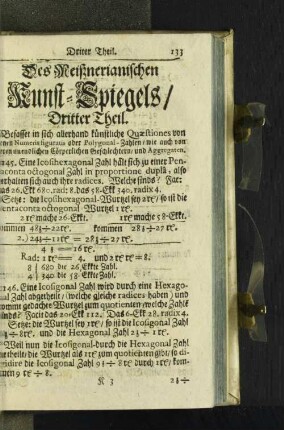 Dritter Theil. 133
Des Meißnerianischen
Kunst-Spiegels/
Dritter Theil.
Befasset in sich allerhand künstliche Quæstiones von
Polygonal-Zahlen/ wie auch von
Cörperlichen Geschlechten und Aggregaten.
145. Eine Icosihexagonal Zahl hält sich zu einer Pen-
tacontaoctogonal Zahl in proportione duplâ, also
verhalten sich auch ihre radices. Welche sinds? Fac:
das 26. Ekk 680. rad: 8. das 58. Ekk 340. radix 4.
Setze: die Icosihexagonal-Wurtzel sey 2re/ so ist die
Pentacontaoctogonal-Wurtzel 1re.
2re mache 26. Ekk: 1re mache 58-Ekk.
kommen 48z÷22re. kommen 28z÷27 re.
2.) 24z÷11re = 28z÷27 re.
4z = 16 re.
Rad: 1 re = 4. und 2 re = 8.
8 | 680 die 26. Ekkte Zahl.
4 | 340 die 58 Ekkte Zahl.
146. Eine Icosigonal Zahl wird durch eine Hexago-
nal Zahl abgetheilt/ welche gleiche radices haben/ und
komme gedachte Wurtzel zum quotienten/ welche Zahle
sinds? Facit das 20-Ekk 112. Das 6-Ekk 28. radix 4.
Setze: die Wurtzel sey re/ so ist die Icosigonal Zahl
9z÷8re, und die Hexagonal Zahl 2z÷1re.
Weil nun die Icosigonal durch die Hexagonal Zahl
getheilt/ die Wurtzel als 1re zum quotienten gibt/ so di-
vidire die Icosigonal Zahl 9z÷8re durch 1re/ kom-
men 9 re÷8.
R 3 2z÷